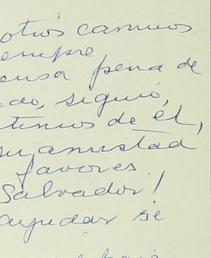 otros caminos
empre
ensa pena de
do, siguió,
timos de él,
su amistad
favores.
Salvador!
ayudar se